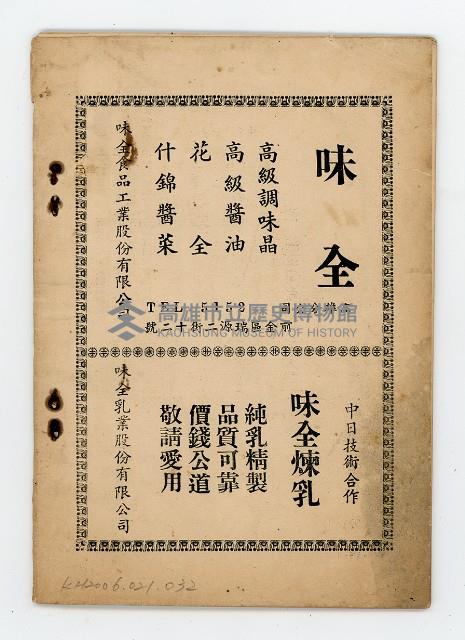 味全
高級調味晶
高級醬油
花全
什錦醬菜
TEL 5152
前金區瑞源二街十二號
味全食品工業股份有限公司
高雄市立歷史博物館
KAOHSIUNG MUSEUM OF HISTORY
中日技術合作
味全煉乳
純乳精製
品質可靠
價錢公道
敬請愛用
味全乳業股份有限公司
KH2006.021.032